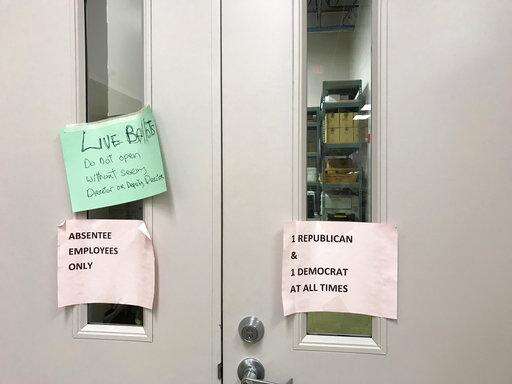 LIVE Ballots
Do not open
without seeing
Director or Deputy Director
ABSENTEE
EMPLOYEES
ONLY
1 REPUBLICAN
&
1 DEMOCRAT
AT ALL TIMES